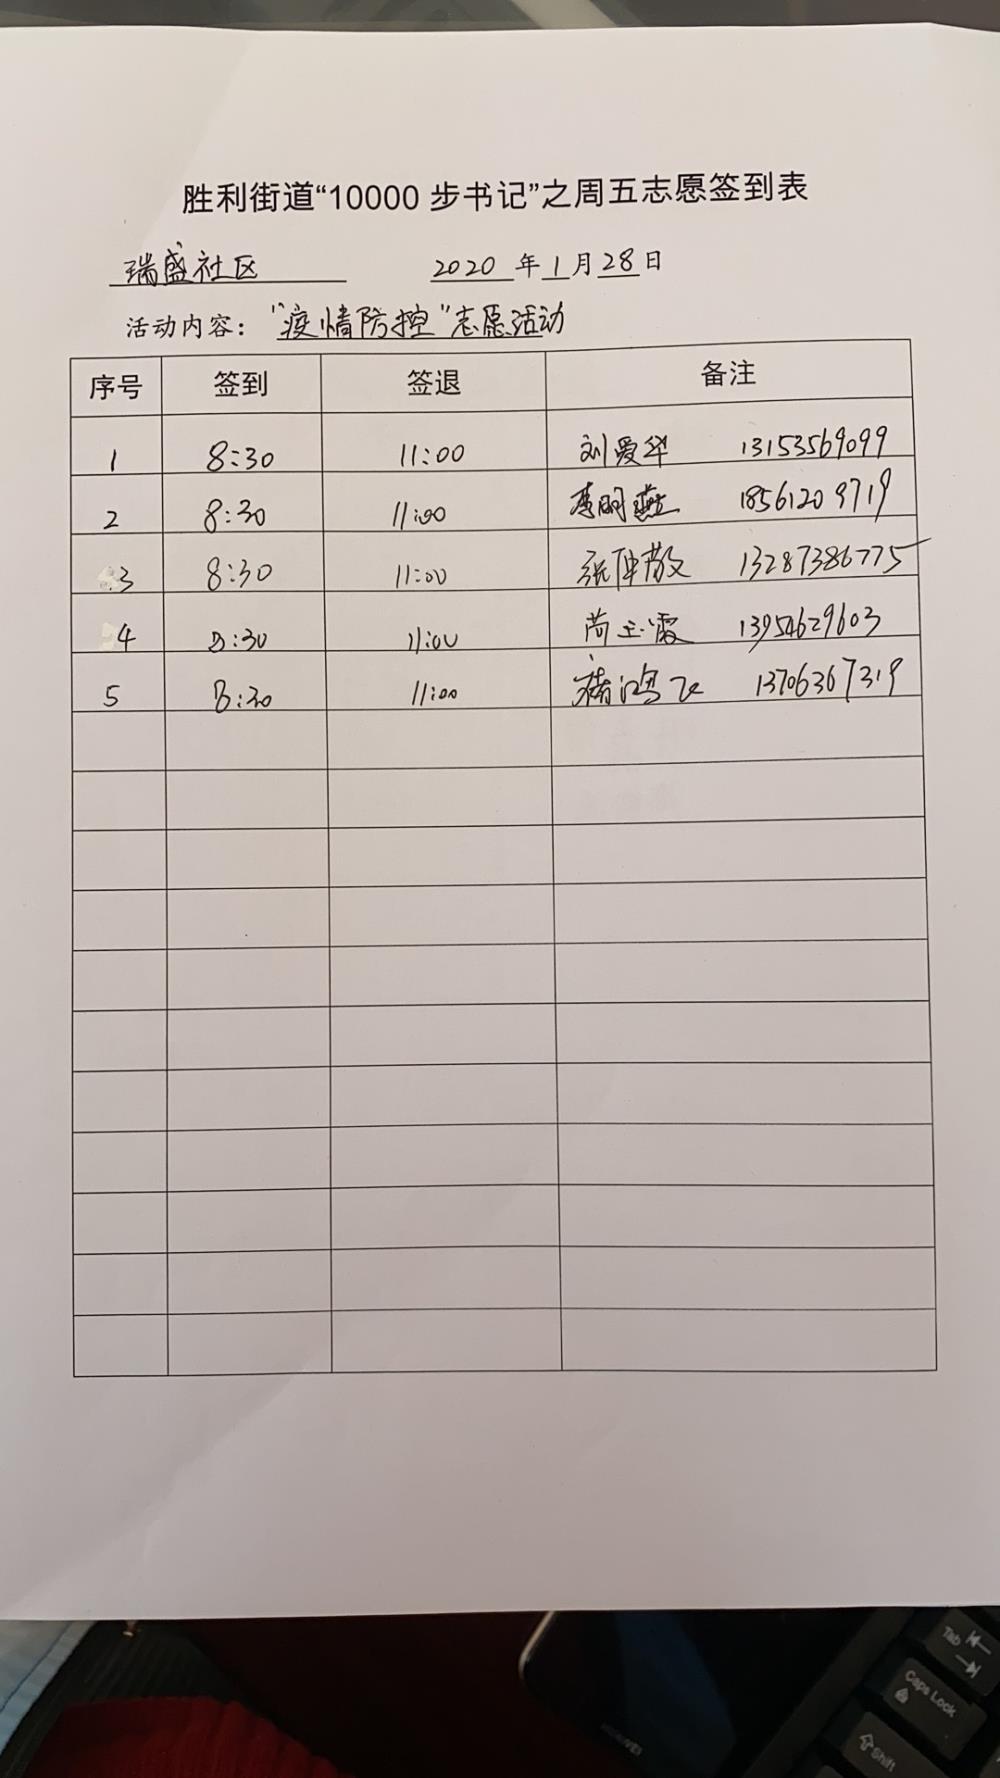 胜利街道“10000 步书记”之周五志愿签到表
瑞盛社区 2020 年 1 月 28 日
活动内容：“疫情防控”志愿活动
序号 签到 签退 备注
1 8:30 11:00 刘爱华 13153569099
2 8:30 11:00 李明燕 18561209719
3 8:30 11:00 张 13287386775
4 8:30 11:00 尚玉霞 13954629603
5 8:30 11:00 褚鸿飞 13706367319
Tab
Caps Lock
Shift
HUAWEI